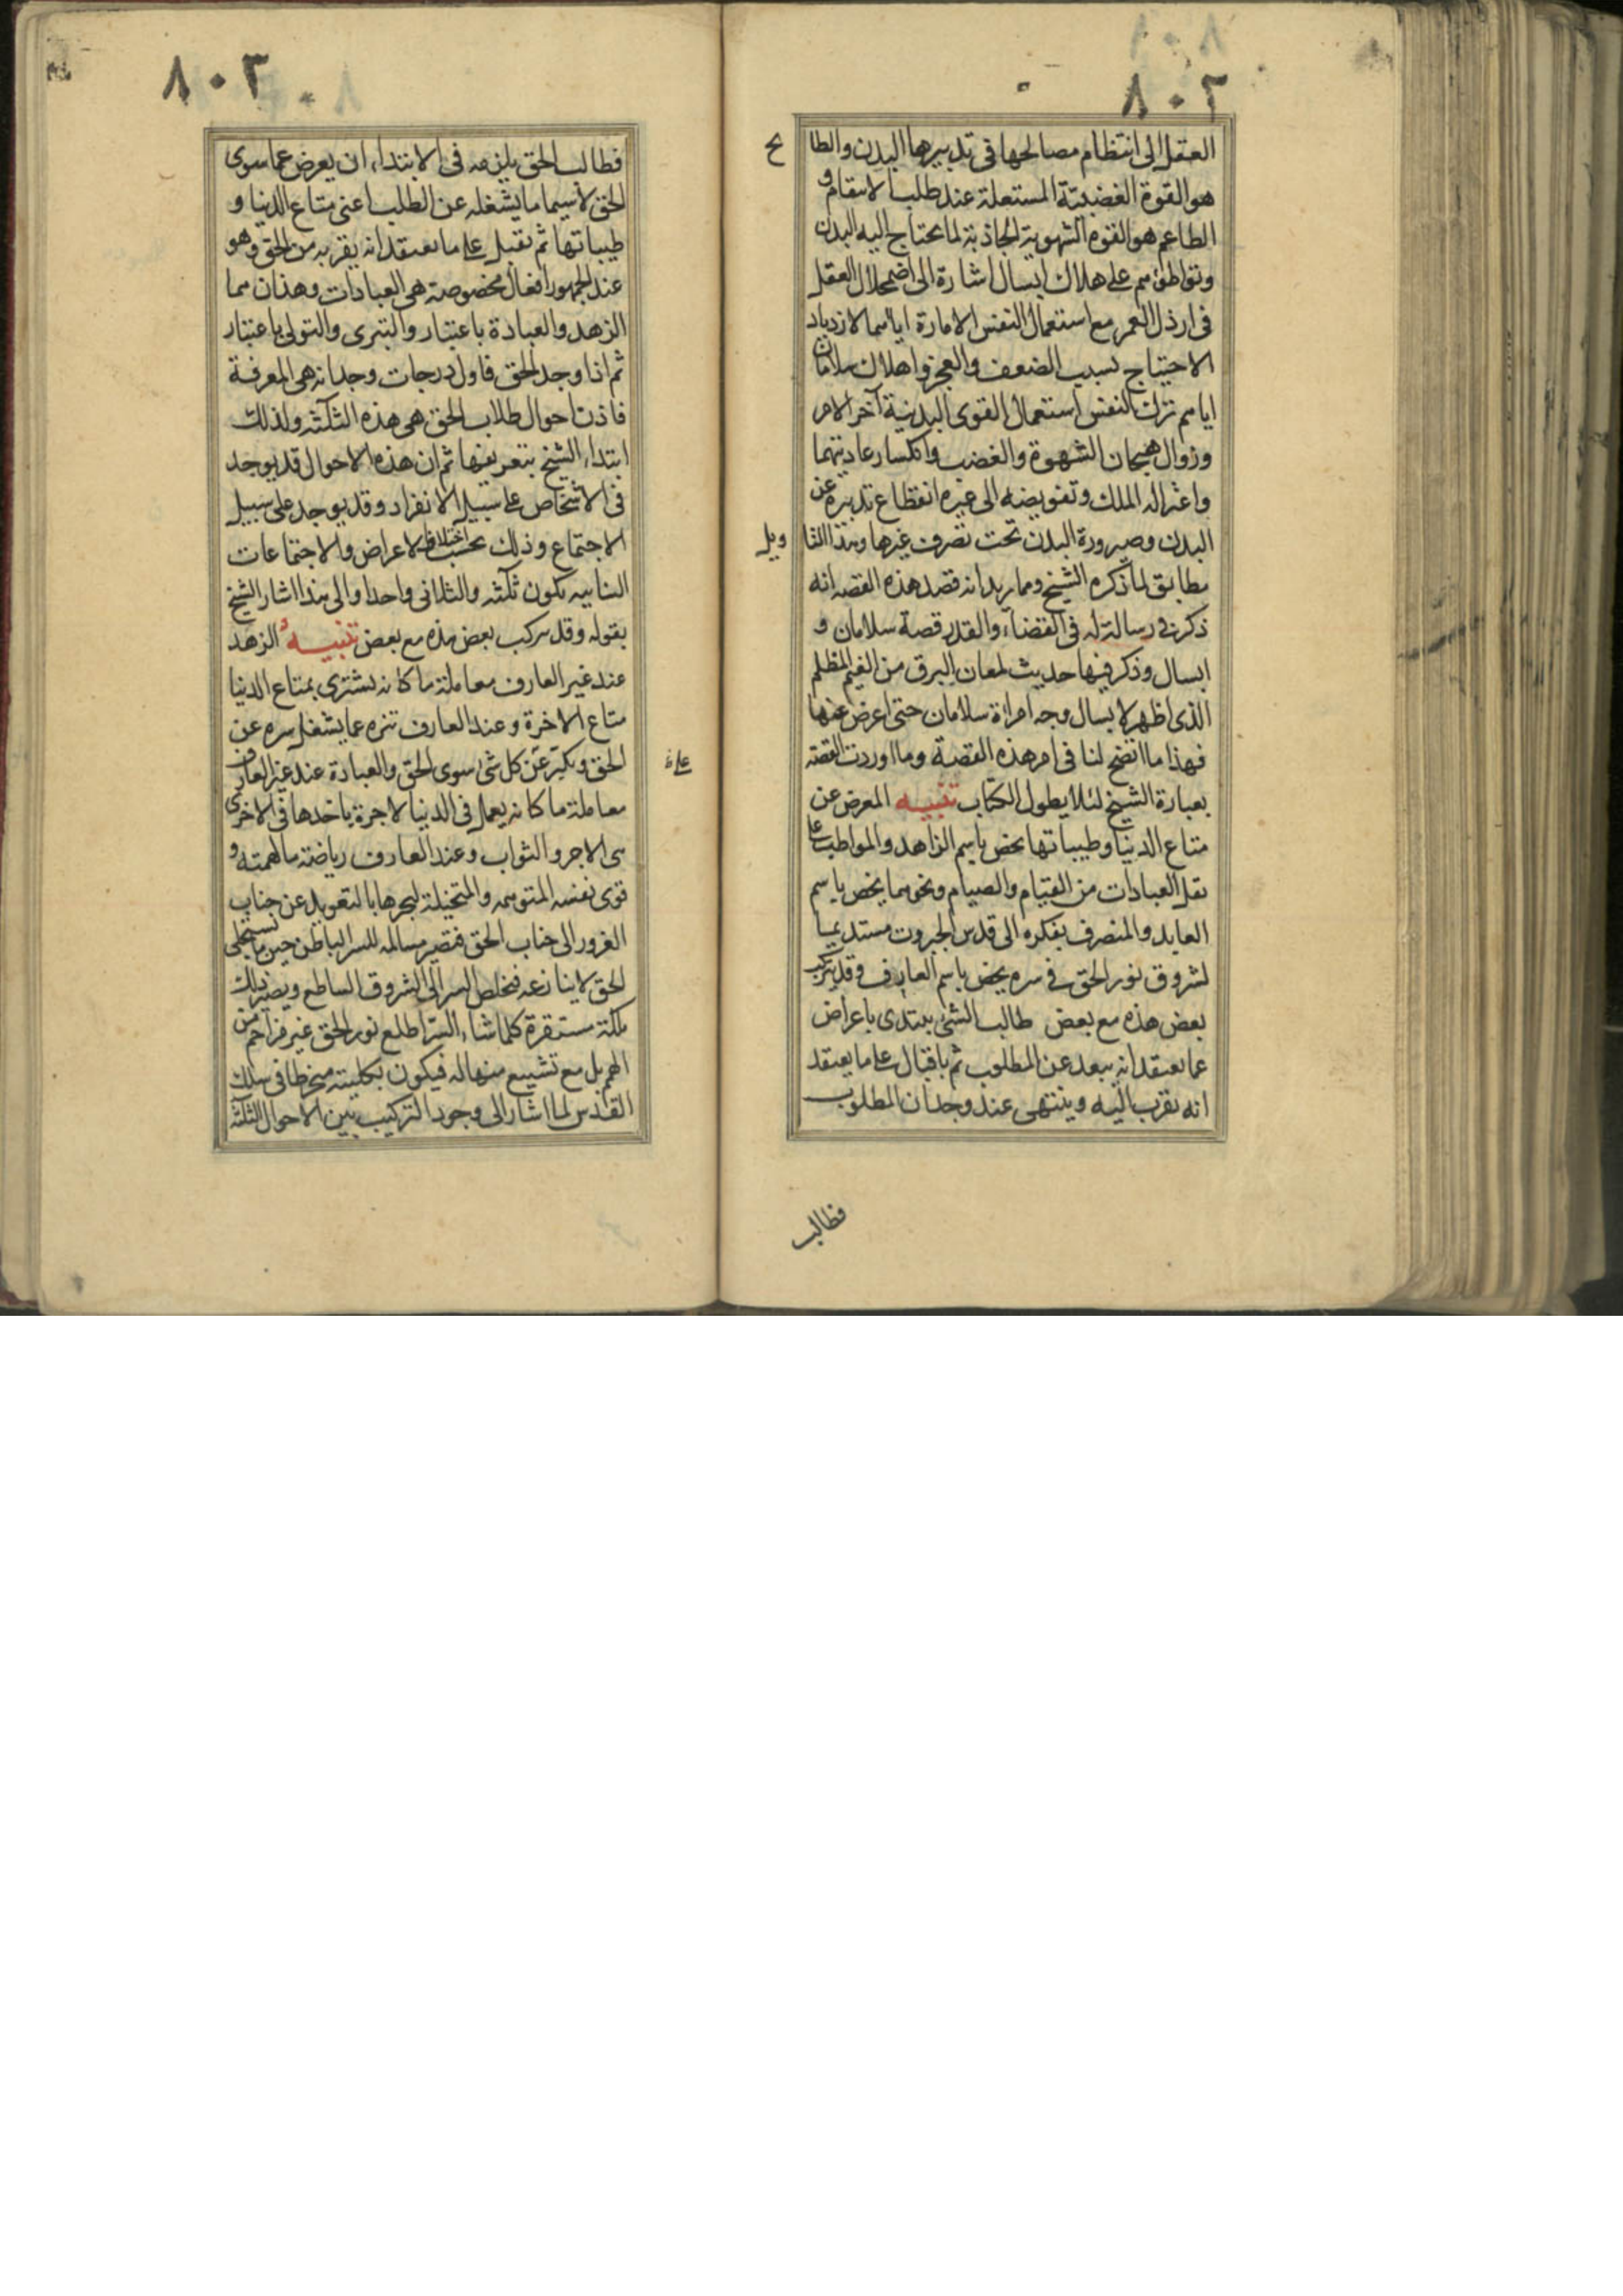 ٨٠٢
العقل الى انتظام مصالحها فى تدبيرها البدن والطا
بخ
هو القوة الغضبية المستعلة عند طلب الانتقام و
الطاعم هو القوة الشهوية الجاذبة لما يحتاج اليه البدن
وتواطؤهم على هلاك ابسال اشارة الى اضمحلال العقل
فى ارذل العمر مع استعمال النفس الامارة اياهما لازدياد
الاحتياج بسبب الضعف والعجز واهلاك سلامان
اياهم ترك النفس استعمال القوى البدنية آخر الامر
وزوال هيجان الشهوة والغضب وانكسار عاديتهما
واعتزاله الملك وتفويضه الى غيره انقطاع تدبيره عن
البدن وصيرورة البدن تحت تصرف غيرها وهذا التا
ويل
مطابق لما ذكره الشيخ ومما يؤيد انه قصد هذه القصه انه
ذكر فى رسالته له فى القضاء والقدر قصة سلامان و
ابسال وذكر فيها حديث لمعان البرق من الغيم المظلم
الذى اظهر لابسال وجه امراة سلامان حتى اعرض عنها
فهذا ما اتضح لنا فى امر هذه القصة وما اوردت القصة
بعبارة الشيخ لئلا يطول الكتاب تنبيه المعرض عن
متاع الدنيا وطيباتها يخص باسم الزاهد والمواظب على
نقل العبادات من القيام والصيام ونحوهما يخص باسم
العابد والمنصرف بفكره الى قدس الجبروت مستديما
لشروق نور الحق فى سره يخص باسم العارف وقد يتركب
بعض هذه مع بعض طالب الشئ يبتدى باعراض
عما يعتقد انه يبعد عن المطلوب ثم باقبال على ما يعتقد
انه يقرب اليه وينتهى عند وجدان المطلوب
فطالب
٨٠٣
فطالب الحق يلزمه فى الابتداء ان يعرض عما سوى
الحق لاسيما ما يشغله عن الطلب اعنى متاع الدنيا و
طيباتها ثم يقبل على ما يعتقد انه يقربه من الحق وهو
عند الجمهور افعال مخصوصة هى العبادات وهذان هما
الزهد والعبادة باعتبار والتبرى والتولى باعتبار
ثم اذا وجد الحق فاول درجات وجدانه هى المعرفة
فاذن احوال طلاب الحق هى هذه الثلثة ولذلك
ابتداء الشيخ بتعريفها ثم ان هذه الاحوال قد يوجد
فى الاشخاص على سبيل الانفراد وقد يوجد على سبيل
الاجتماع وذلك بحسب اختلاف الاعراض والاجتماعات
الثنائية يكون ثلثة والثلاثى واحدا والى هذا اشار الشيخ
بقوله وقد يتركب بعض هذه مع بعض تنبيه الزهد
عند غير العارف معاملة ما كانه يشترى بمتاع الدنيا
متاع الاخرة وعند العارف تنزه عما يشغل سره عن
الحق وتكبر عن كل شئ سوى الحق والعبادة عند غير العارف
معاملة ما كانه يعمل فى الدنيا لاجرة ياخذها فى الاخرى
هى الاجر والثواب وعند العارف رياضة ما لهمته و
قوى نفسه المتوهمه والمتخيلة ليجرها بالتعويد عن جناب
الغرور الى جناب الحق فتصير مسالمه للسر الباطن حين ما يستجلى
الحق لا ينازعه فيخلص السر الى الشروق الساطع ويصير ذلك
ملكة مستقرة كلما شاء السر اطلع نور الحق غير مزاحم من
الهمم بل مع تشييع منها له فيكون بكليته منخرطا فى سلك
القدس لما اشار الى وجود التركيب بين الاحوال الثلثة